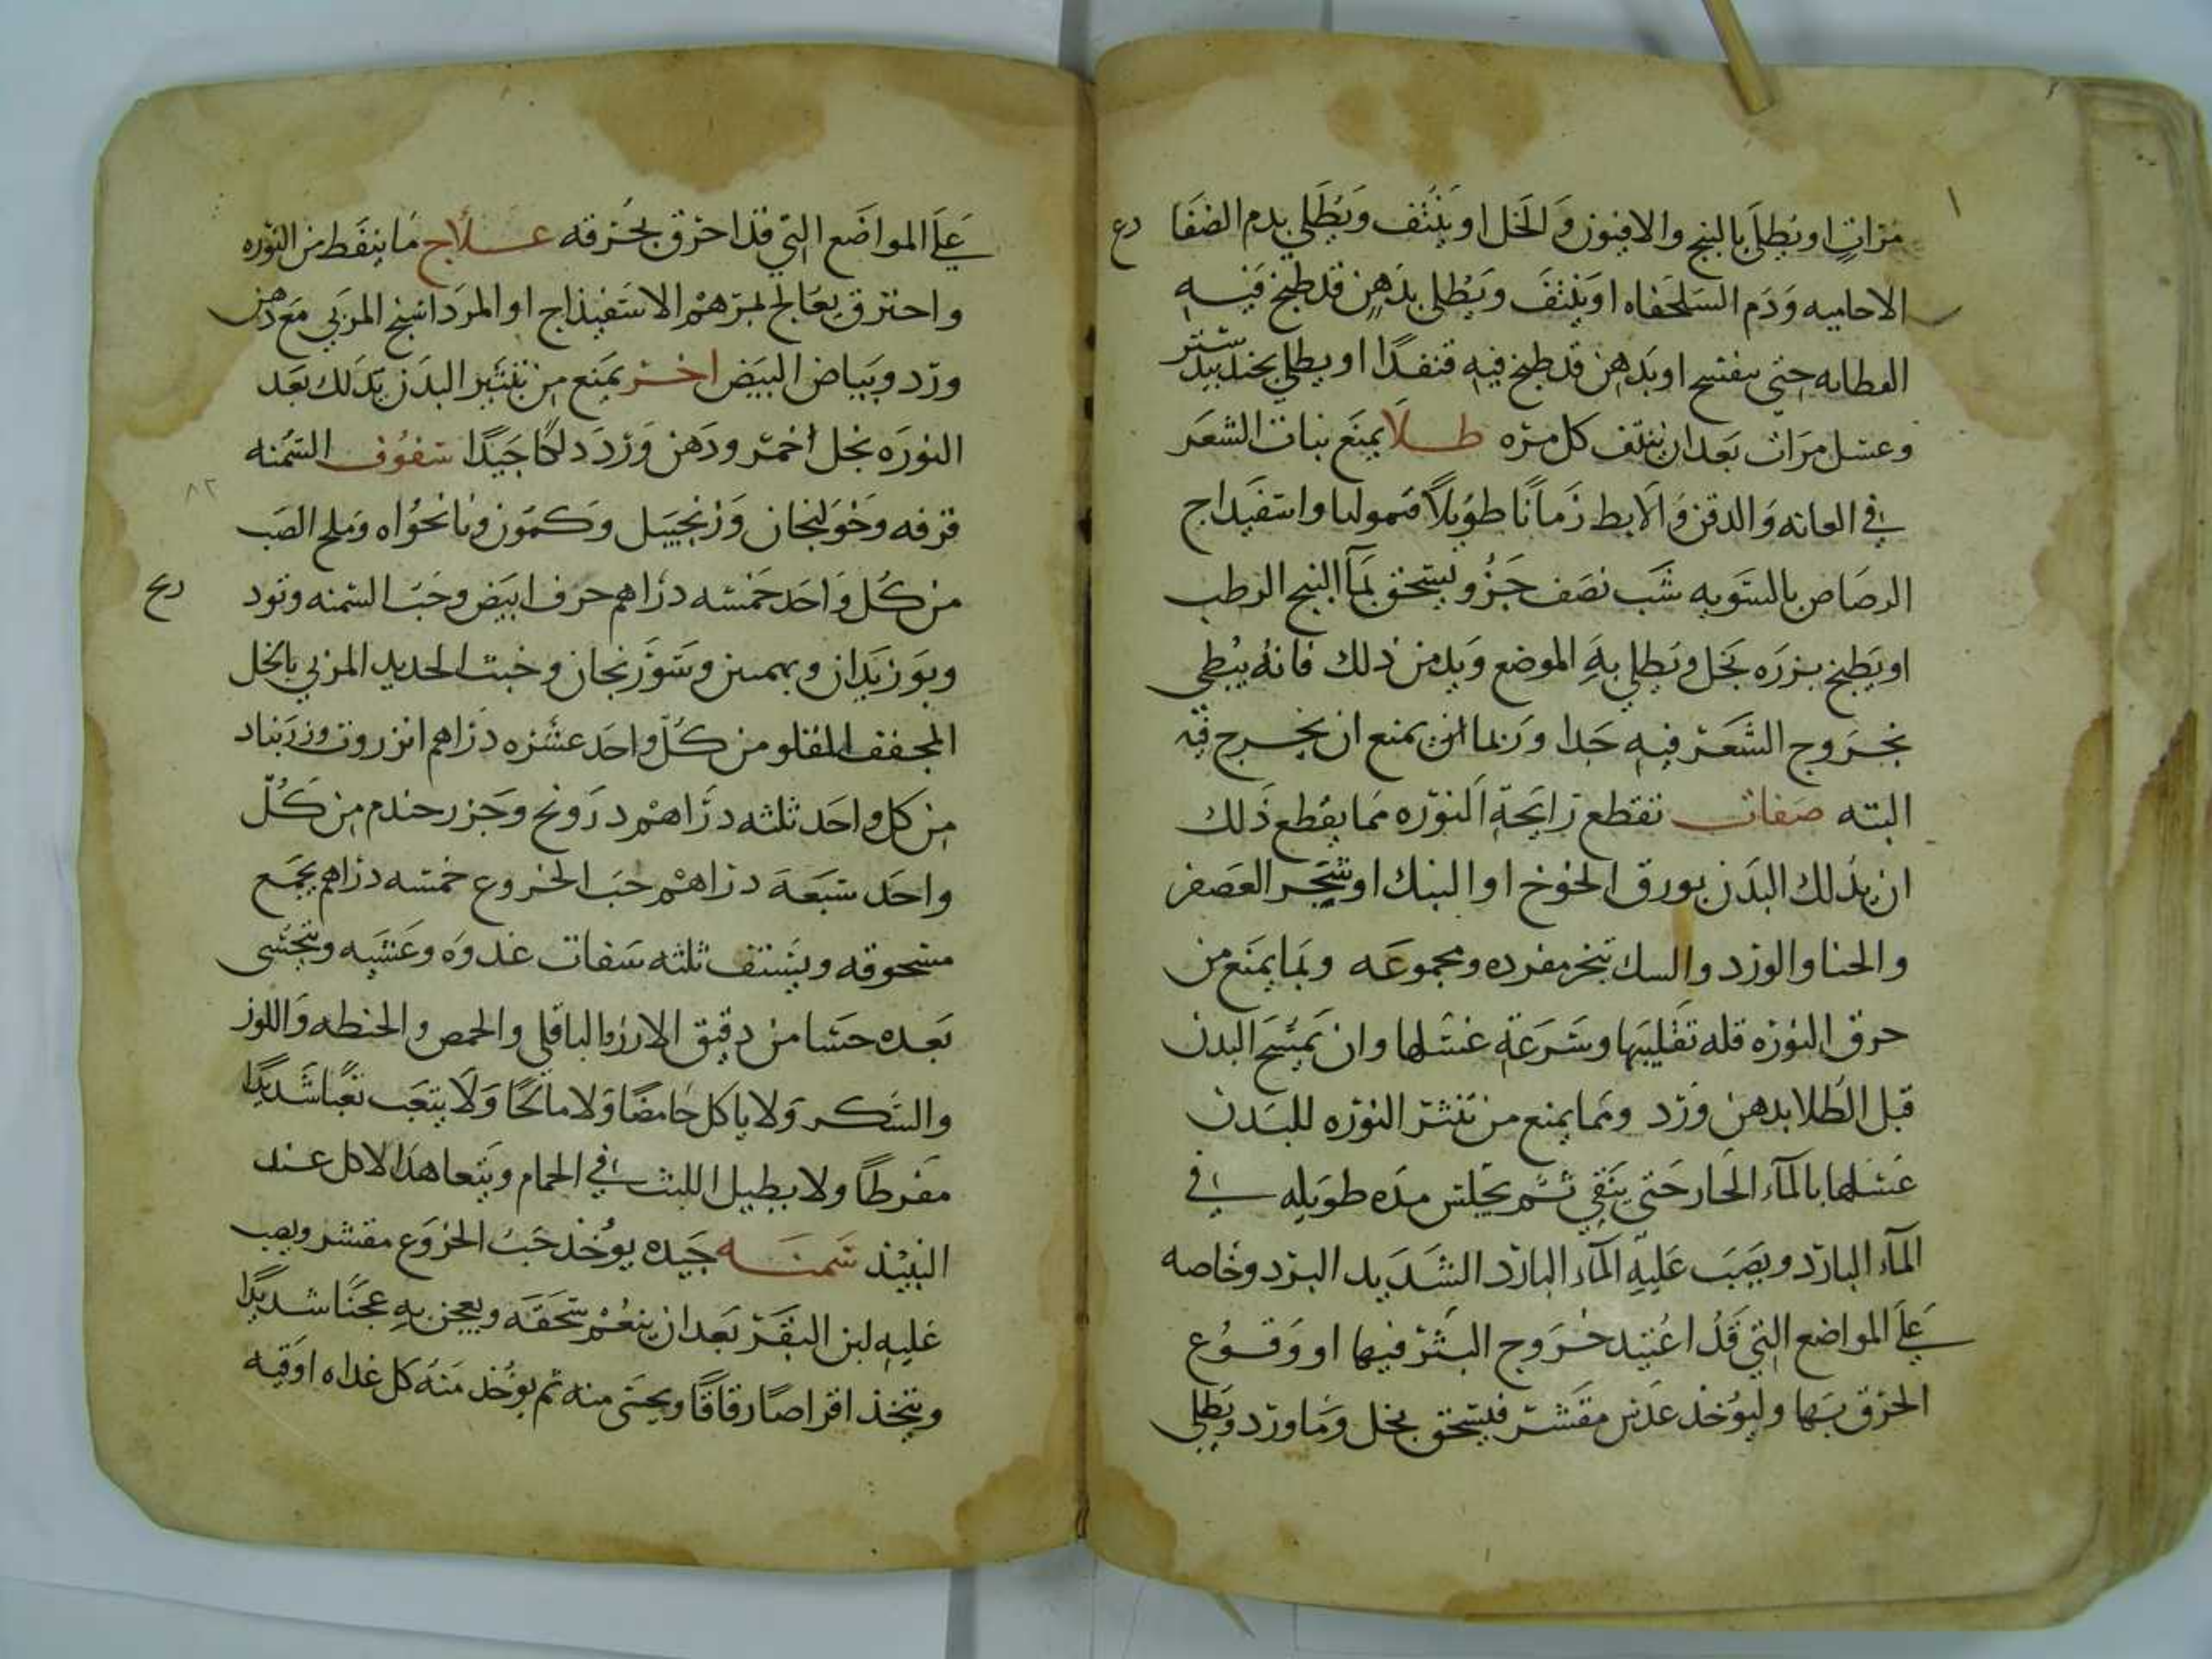 مرات او يطلى بالبنج والافيون والخل او ينتف ويطلى بدم الضفا دع
الاحاميه ودم السلحفاه او ينتف ويطلى بدهن قد طبخ فيه
العظايه حتى يتفسخ او بدهن قد طبخ فيه قنفدا او يطلى بجندبيدستر
وغسل مرات بعد ان ينتف كل مره طلا يمنع نبات الشعر
في العانه والدقن والابط زمانا طويلا قيموليا واسفيداج
الرصاص بالسويه شب نصف جزو يسحق بماء البنج الرطب
او يطبخ بزره بخل ويطلى به الموضع ويدمن ذلك فانه يبطي
بخروج الشعر فيه جدا وربما ان يمنع ان يخرج فيه
البته صفات تقطع رايحة النوره مما يقطع ذلك
ان يدلك البدن بورق الخوخ او البنك او شجر العصفر
والحنا والورد والسك بخر مفرده ومجموعه ومما يمنع من
حرق النوره قله تقليبها وسرعة غسلها وان يمسح البدن
قبل الطلا بدهن ورد ومما يمنع من تنثر النوره للبدن
غسلها بالماء الحار حتى ينقي ثم يجلس مده طويله في
الماء البارد ويصب عليه الماء البارد الشديد البرد وخاصه
على المواضع التي قد اعتيد خروج البثر فيها او وقوع
الحرق بها وليوخذ عدس مقشر فيسحق بخل وماورد ويطلى
على المواضع التي قد احرق بخرقه علاج ما ينفط من النوره
واحترق يعالج بمرهم الاسفيداج او المرداسنج المربي مع دهن
ورد وبياض البيض اخر يمنع من تنثير البدن يدلك بعد
النوره بخل خمر ودهن ورد دلكا جيدا سفوف السمنه
٨٢
قرفه وخولنجان وزنجبيل وكمون ونانخواه وملح الصب
من كل واحد خمسه دراهم حرف ابيض وحب السمنه وتود ريح
وبوزيدان وبهمين وسورنجان وخبث الحديد المربي بالخل
المجفف المقلو من كل واحد عشره دراهم انزروت وزرنباد
من كل واحد ثلثه دراهم درونج وجزر حندم من كل
واحد سبعة دراهم حب الخروع خمسه دراهم يجمع
مسحوقه ويستف ثلثه سفات غدوه وعشيه ويتحسى
بعده حسا من دقيق الارز والباقلي والحمص والحنطه واللوز
والسكر ولا ياكل حامضا ولا مالحا ولا يتعب تعبا شديدا
مفرطا ولا يطيل اللبث في الحمام ويتعاهد الاكل عند
النبيذ سمنه جيده يوخذ حب الخروع مقشر ويصب
عليه لبن البقر بعد ان ينعم سحقه ويعجن به عجنا شديدا
ويتخذ اقراصا رقاقا ويحسى منه ثم يوخذ منه كل غداه اوقيه